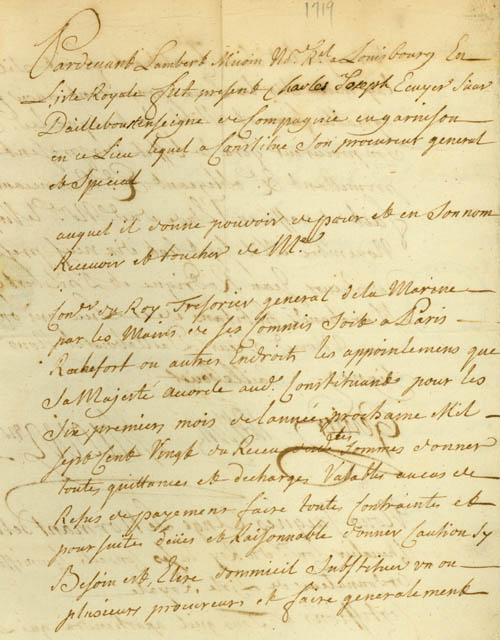 1719
Pardevant Lambert Micoin No.re Rl. a Louisbourg En
Lisle Royale fut present Charles Joseph Ecuyer Sieur
Dailleboust enseigne de Compagnie en garnison
en ce Lieu lequel a Constitue Son procureur general
et Special
auquel il donne pouvoir de pour et en Son nom
Recevoir et toucher de Mr.
Con.er du Roy Tresorier general de la Marine
par les Mains de ses Commis Soit a Paris
Rochefort ou autres Endroits les appointemens que
Sa Majesté acorde aud. Constituant pour les
Six premiers mois de lannée prochaine Mil
Sept Cent Vingt du Receu Sommes donner
toutes quittances et decharges Valables au cas de
Refus de payement faire toutes Contraintes et
poursuites deües et Raisonnable donner Caution Sy
Besoin est Elire domicil Substituer un ou
plusieurs procureurs et faire generalement